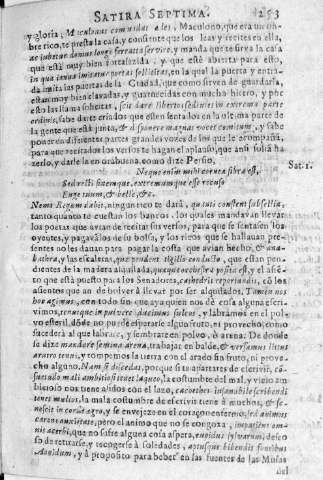 SATIRA SEPTIMA. 253
y gloria, Maculonus commodat ædes, Maculono, que era vn hombre
rico, te presta la casa, y consiente que los leas y recites en ella,
ac iubetur domus longe ferrata servire, y manda que te sirva la casa
que està muy bien fortalezida, y que esté abierta para esto,
in qua ianua imitatur portas sollicitas, en la qual la puerta y entrada
imita las puertas de la Ciudad, que como sirven de guardarla,
estan muy bien clavadas, y guarnecidas con mucho hierro, y por
esto las llama solicitas, scit dare libertos sedentes in extrema parte
ordinis, sabe darte criados que esten sentados en la vltima parte de
la gente que està junta, & disponere magnas voces comitum, y sabe
poner en diferentes partes grandes voces de los que le acompañã,
para que recitados los versos te hagan el aplauso, que ansi solia hazerlo,
y darle la enorabuena, como dize Persio,
Neque enim mihi cornea fibra est, Sat. 1.
Sed recti finemque, extremumque esse recuso
Euge tuum, & belle, &c.
Nemo Regum dabit, ningun rico te darà, quanti constent subsellia,
tanto quanto te cuestan los bancos, los quales mandavan llevar
los poetas que avian de recitar sus versos, para que se sentassen los
oyentes, y pagavalos de su bolsa, y los ricos que se hallavan presentes
no les davan para pagar la costa que avian hecho, & anabathra,
y las escaleras, que pendent tigillo conducto, que estan pendientes
de la madera alquilada, quæque orchestra posita est, y el assiento
que està puesto para los Senadores, cathedris reportandis, cõ los
assientos que an de bolver à llevar por ser alquilados. Tamen nos
hoc agimus, con todo sin que aya quien nos dè cosa alguna escrivimos,
tenuique in pulvere ducimus sulcos, y labramos en el polvo
esteril, dõde no puede esperarse algun fruto, ni provecho, como
sucederà al que labrare, y sembrare en polvo, ò arena. De donde
se dize mandare semina arenæ, trabajar en balde, & versamus littus
aratro tenui, y rompemos la tierra con el arado sin fruto, ni provecho
alguno. Nam si discedas, porque si te apartares de escrivir, consuetudo
mali ambitiosi tenet laqueo, la costumbre del mal, y vicio ambicioso
nos tiene atados con el lazo, cacoethes insanabile scribendi
tenet multos, la mala costumbre de escrivir tiene à muchos, & senescit
in corde ægro, y se envejeze en el coraçon enfermo, sed animus
carens anxietate, pero el animo que no se congoxa, impatiens omnis
acerbi, que no sufre alguna cosa aspera, cupidus sylvarum, desseoso
de retirarse, y recogerse à soledades, aptusque bibendis fontibus
Aonidum, y à proposito para beber en las fuentes de las Musas
del